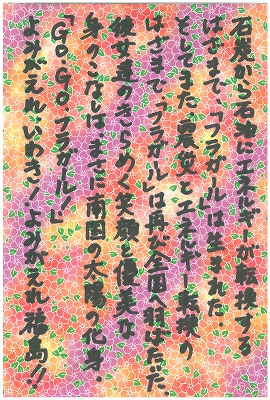 石炭から石油にエネルギーが転換する
はざまで、「フラガール」は生まれた。
そしてまた、震災とエネルギー転換の
はざまで「フラガール」は再び全国へ羽ばたいた。
彼女達のきらめく笑顔と優美な
身のこなしはまさに南国の太陽の化身。
「GO、GO、フラガール!」
よみがえれ、いわき!よみがえれ福島!!